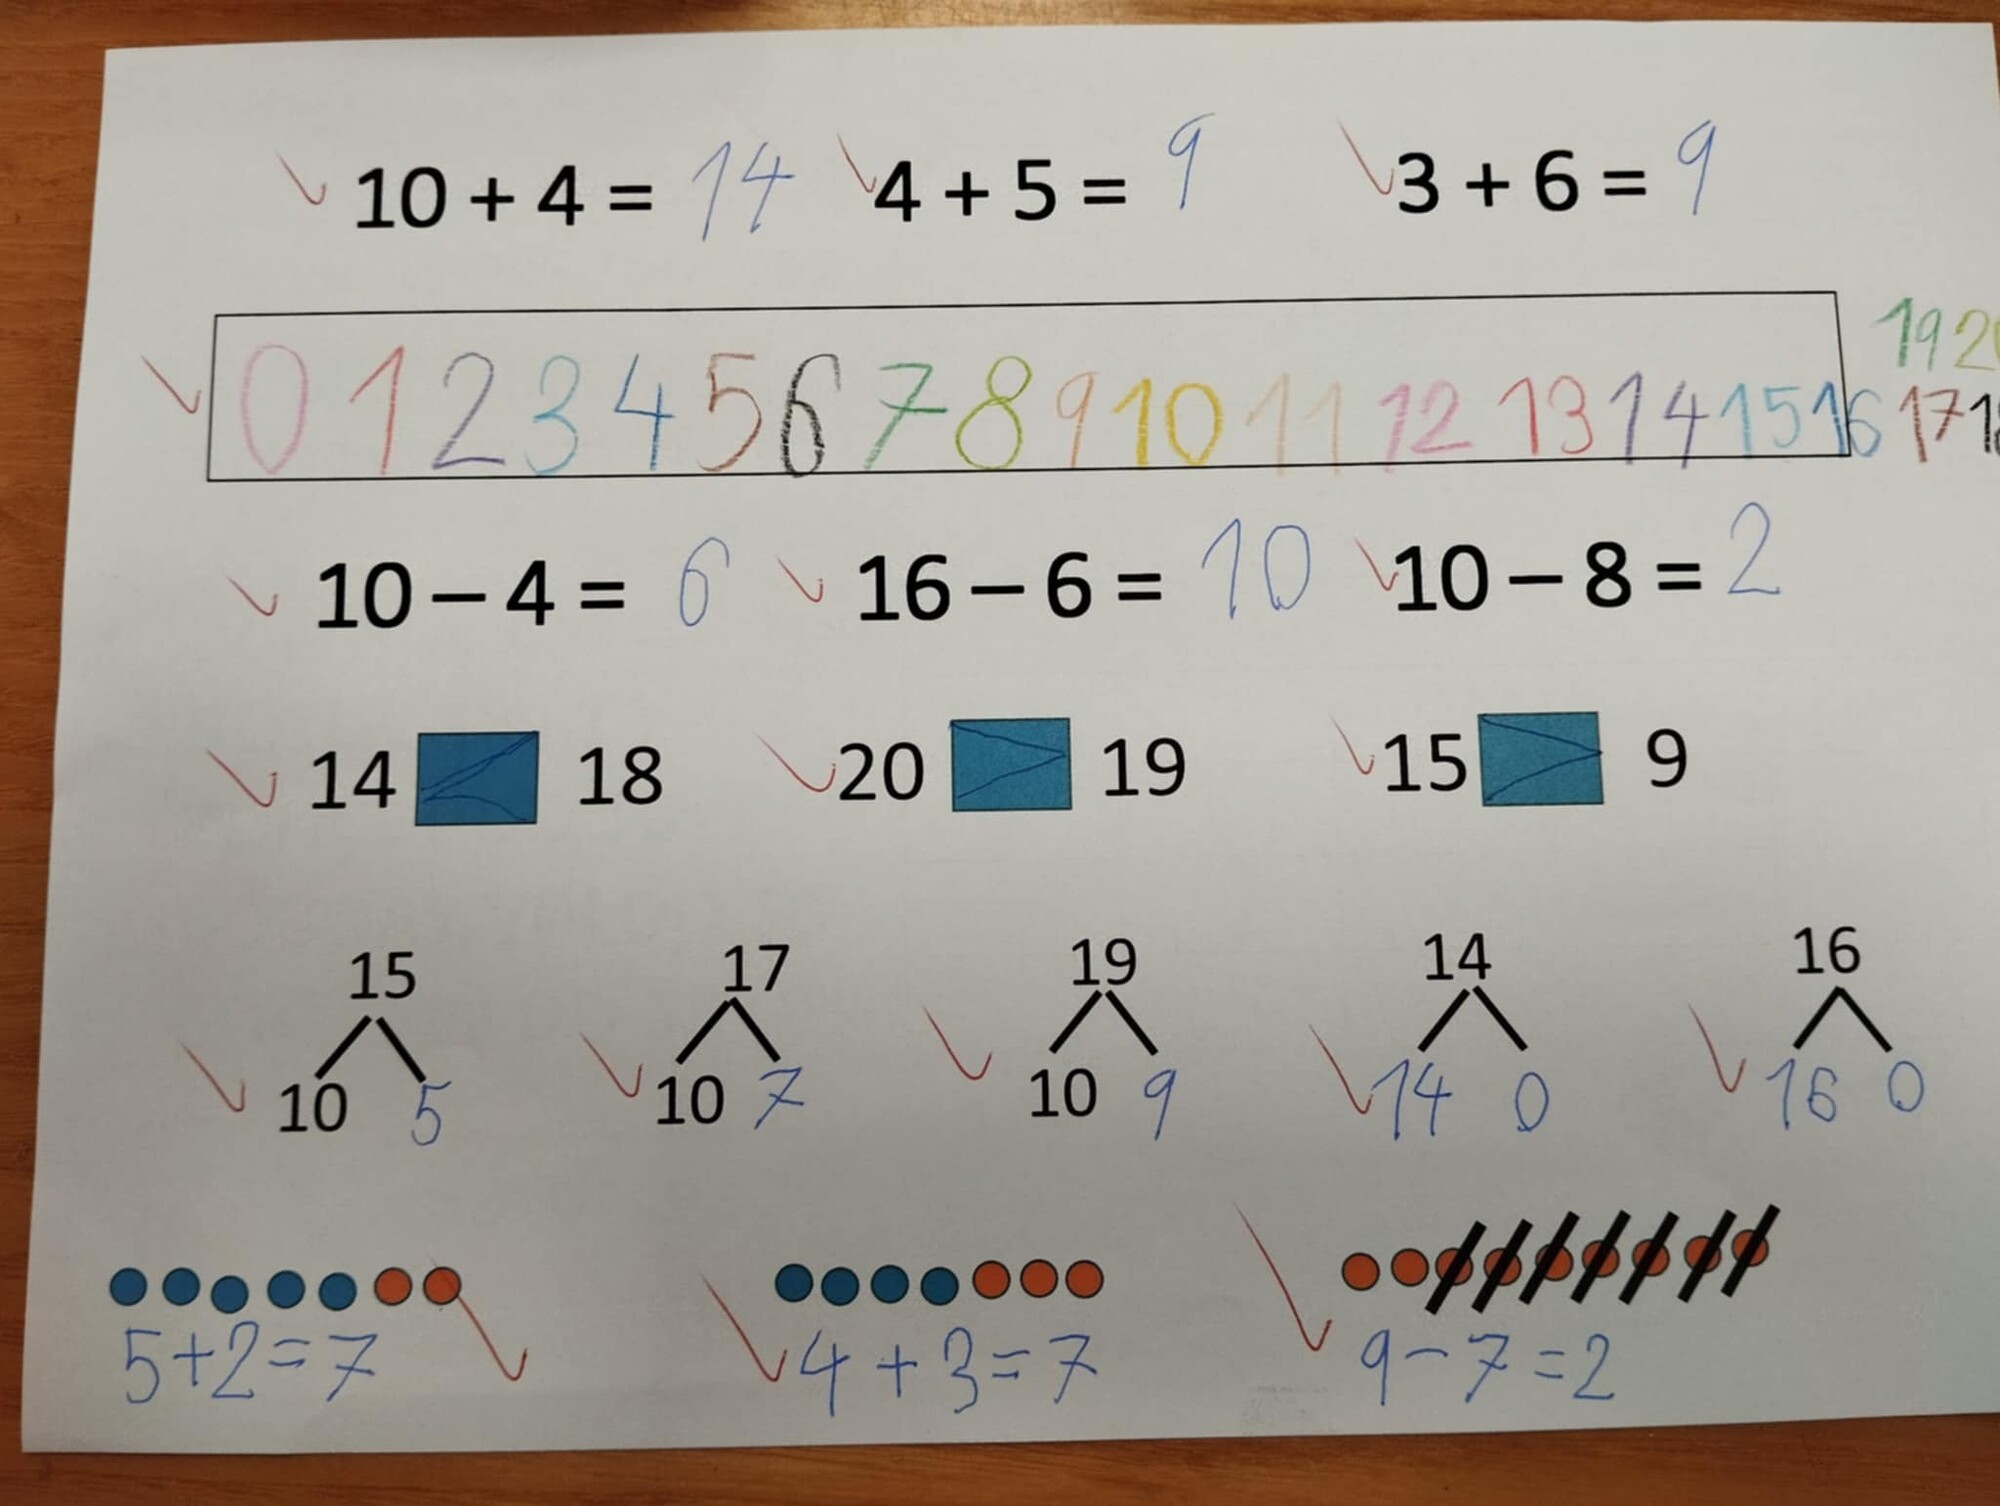 10 + 4 = 14 4 + 5 = 9 3 + 6 = 9
19 20
0 1 2 3 4 5 6 7 8 9 10 11 12 13 14 15 16 17 18
10 – 4 = 6 16 – 6 = 10 10 – 8 = 2
14 < 18 20 > 19 15 > 9
15 17 19 14 16
10 5 10 7 10 9 14 0 16 0
5+2=7 4+3=7 9-7=2